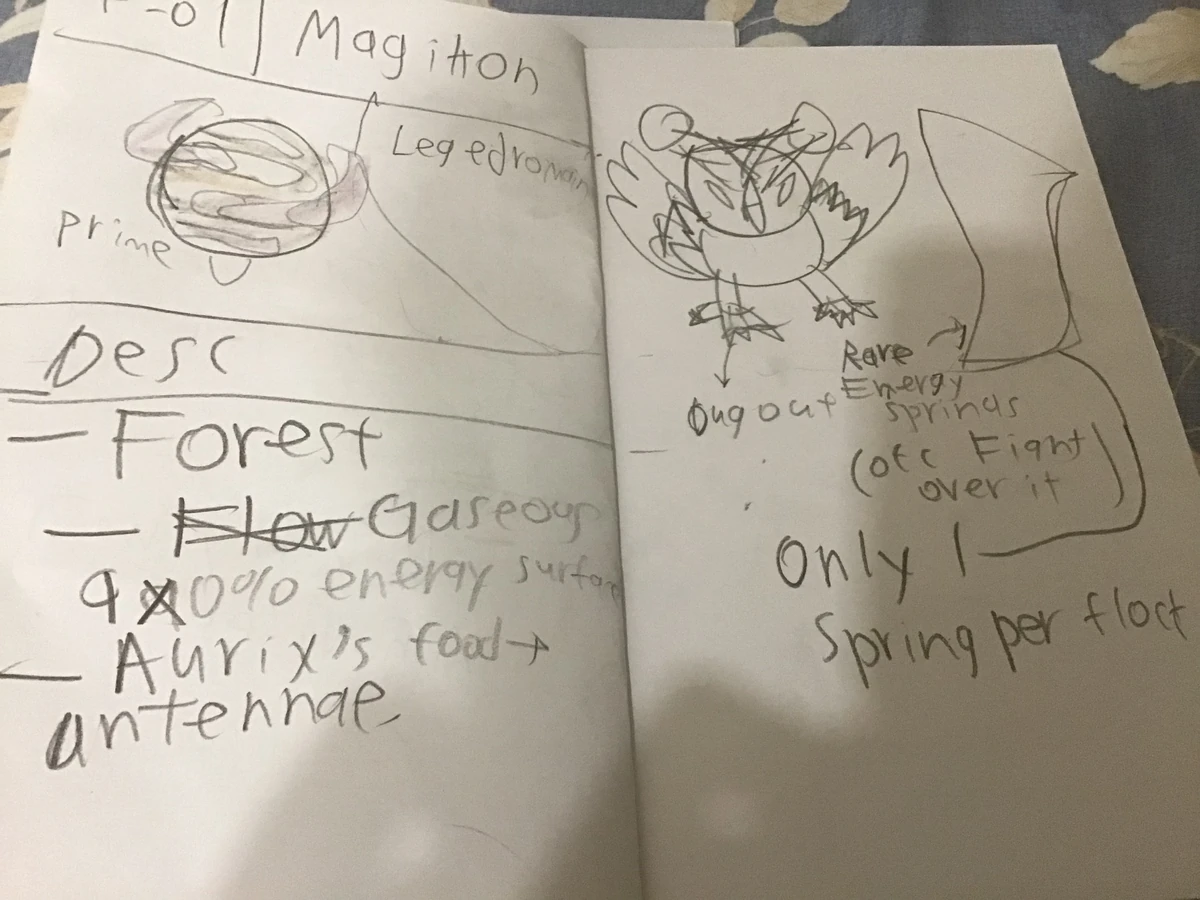 -01 Magitton
Legedromain
prime
Desc
- Forest
- Flow Gaseous
90% energy surface
- Aurix's food →
antennae
Dug out
Rare
Energy
springs
(otc Fight
over it)
Only 1
Spring per flock